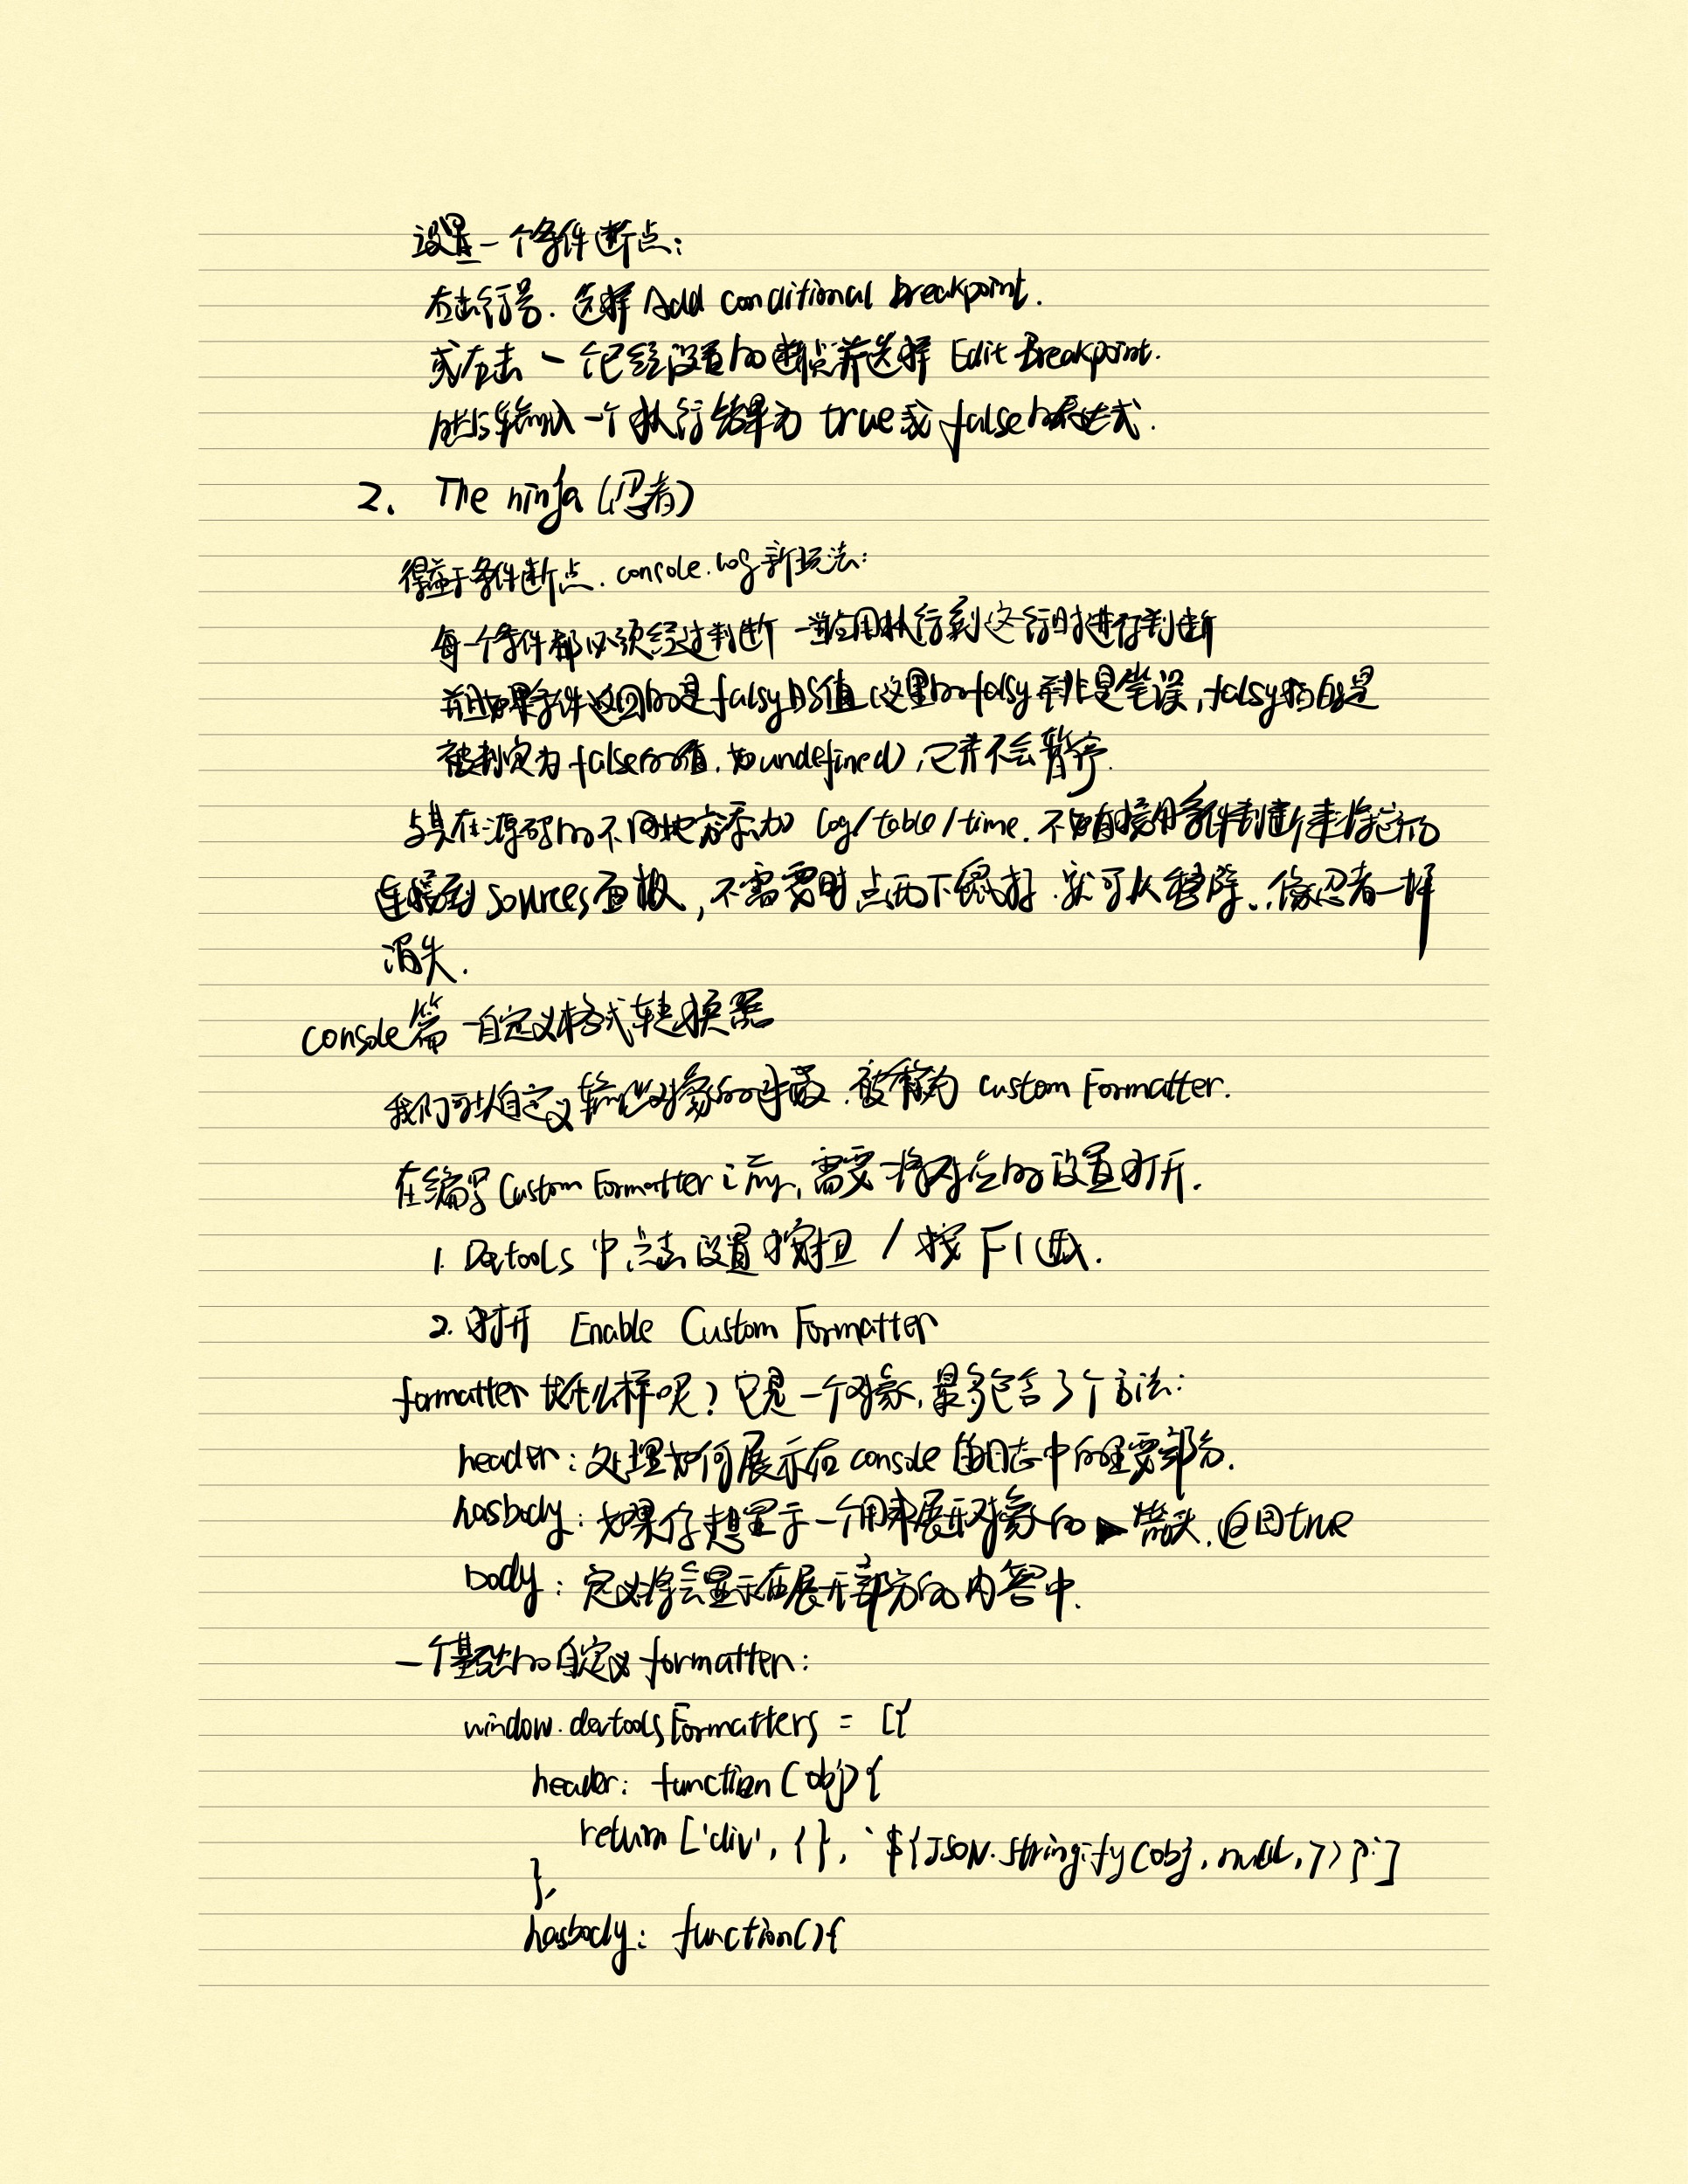 设置一个条件断点:
右击行号. 选择 Add conditional breakpoint.
或右击 一个已经设置的断点并选择 Edit Breakpoint.
然后输入一个执行结果为 true或 false的表达式.
2. The ninja (忍者)
得益于条件断点. console.log 新玩法:
每一个条件都必须经过判断 一当应用执行到这行时进行判断
并且如果条件返回的是 falsy的值 (这里的falsy 并非是笔误, falsy指的是
被判定为 false的值. 如undefined) ,它并不会暂停.
与其在源码的不同地方添加 log/table/time. 不如直接用条件判断来将它们
连接到 Sources面板, 不需要时点两下鼠标. 就可从移除. 像忍者一样
消失.
console篇 - 自定义格式转换器
我们可以自定义输出对象的函数. 被称为 Custom Formatter.
在编写 Custom Formatter 之前, 需要将对应的设置打开.
1. Devtools 中点击设置按扭 / 按 F1 进入.
2. 打开 Enable Custom Formatter
formatter 长什么样呢? 它是一个对象, 最多包含3个方法:
header: 处理如何展示在 console 的日志中的主要部分.
hasbody: 如果你想显示一个用来展开对象的 ▶ 箭头. 返回true
body: 定义将会显示在展开部分的内容中.
一个基础的自定义 formatter:
window.devtoolsFormatters = [{
header: function (obj) {
return ['div', {}, `${JSON.stringify(obj, null, 2)}`]
},
hasbody: function(){